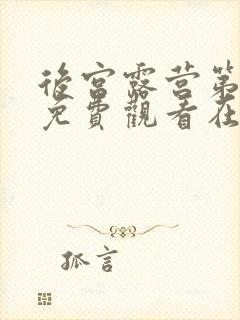 後宮露营第
免費觀看在
孤言